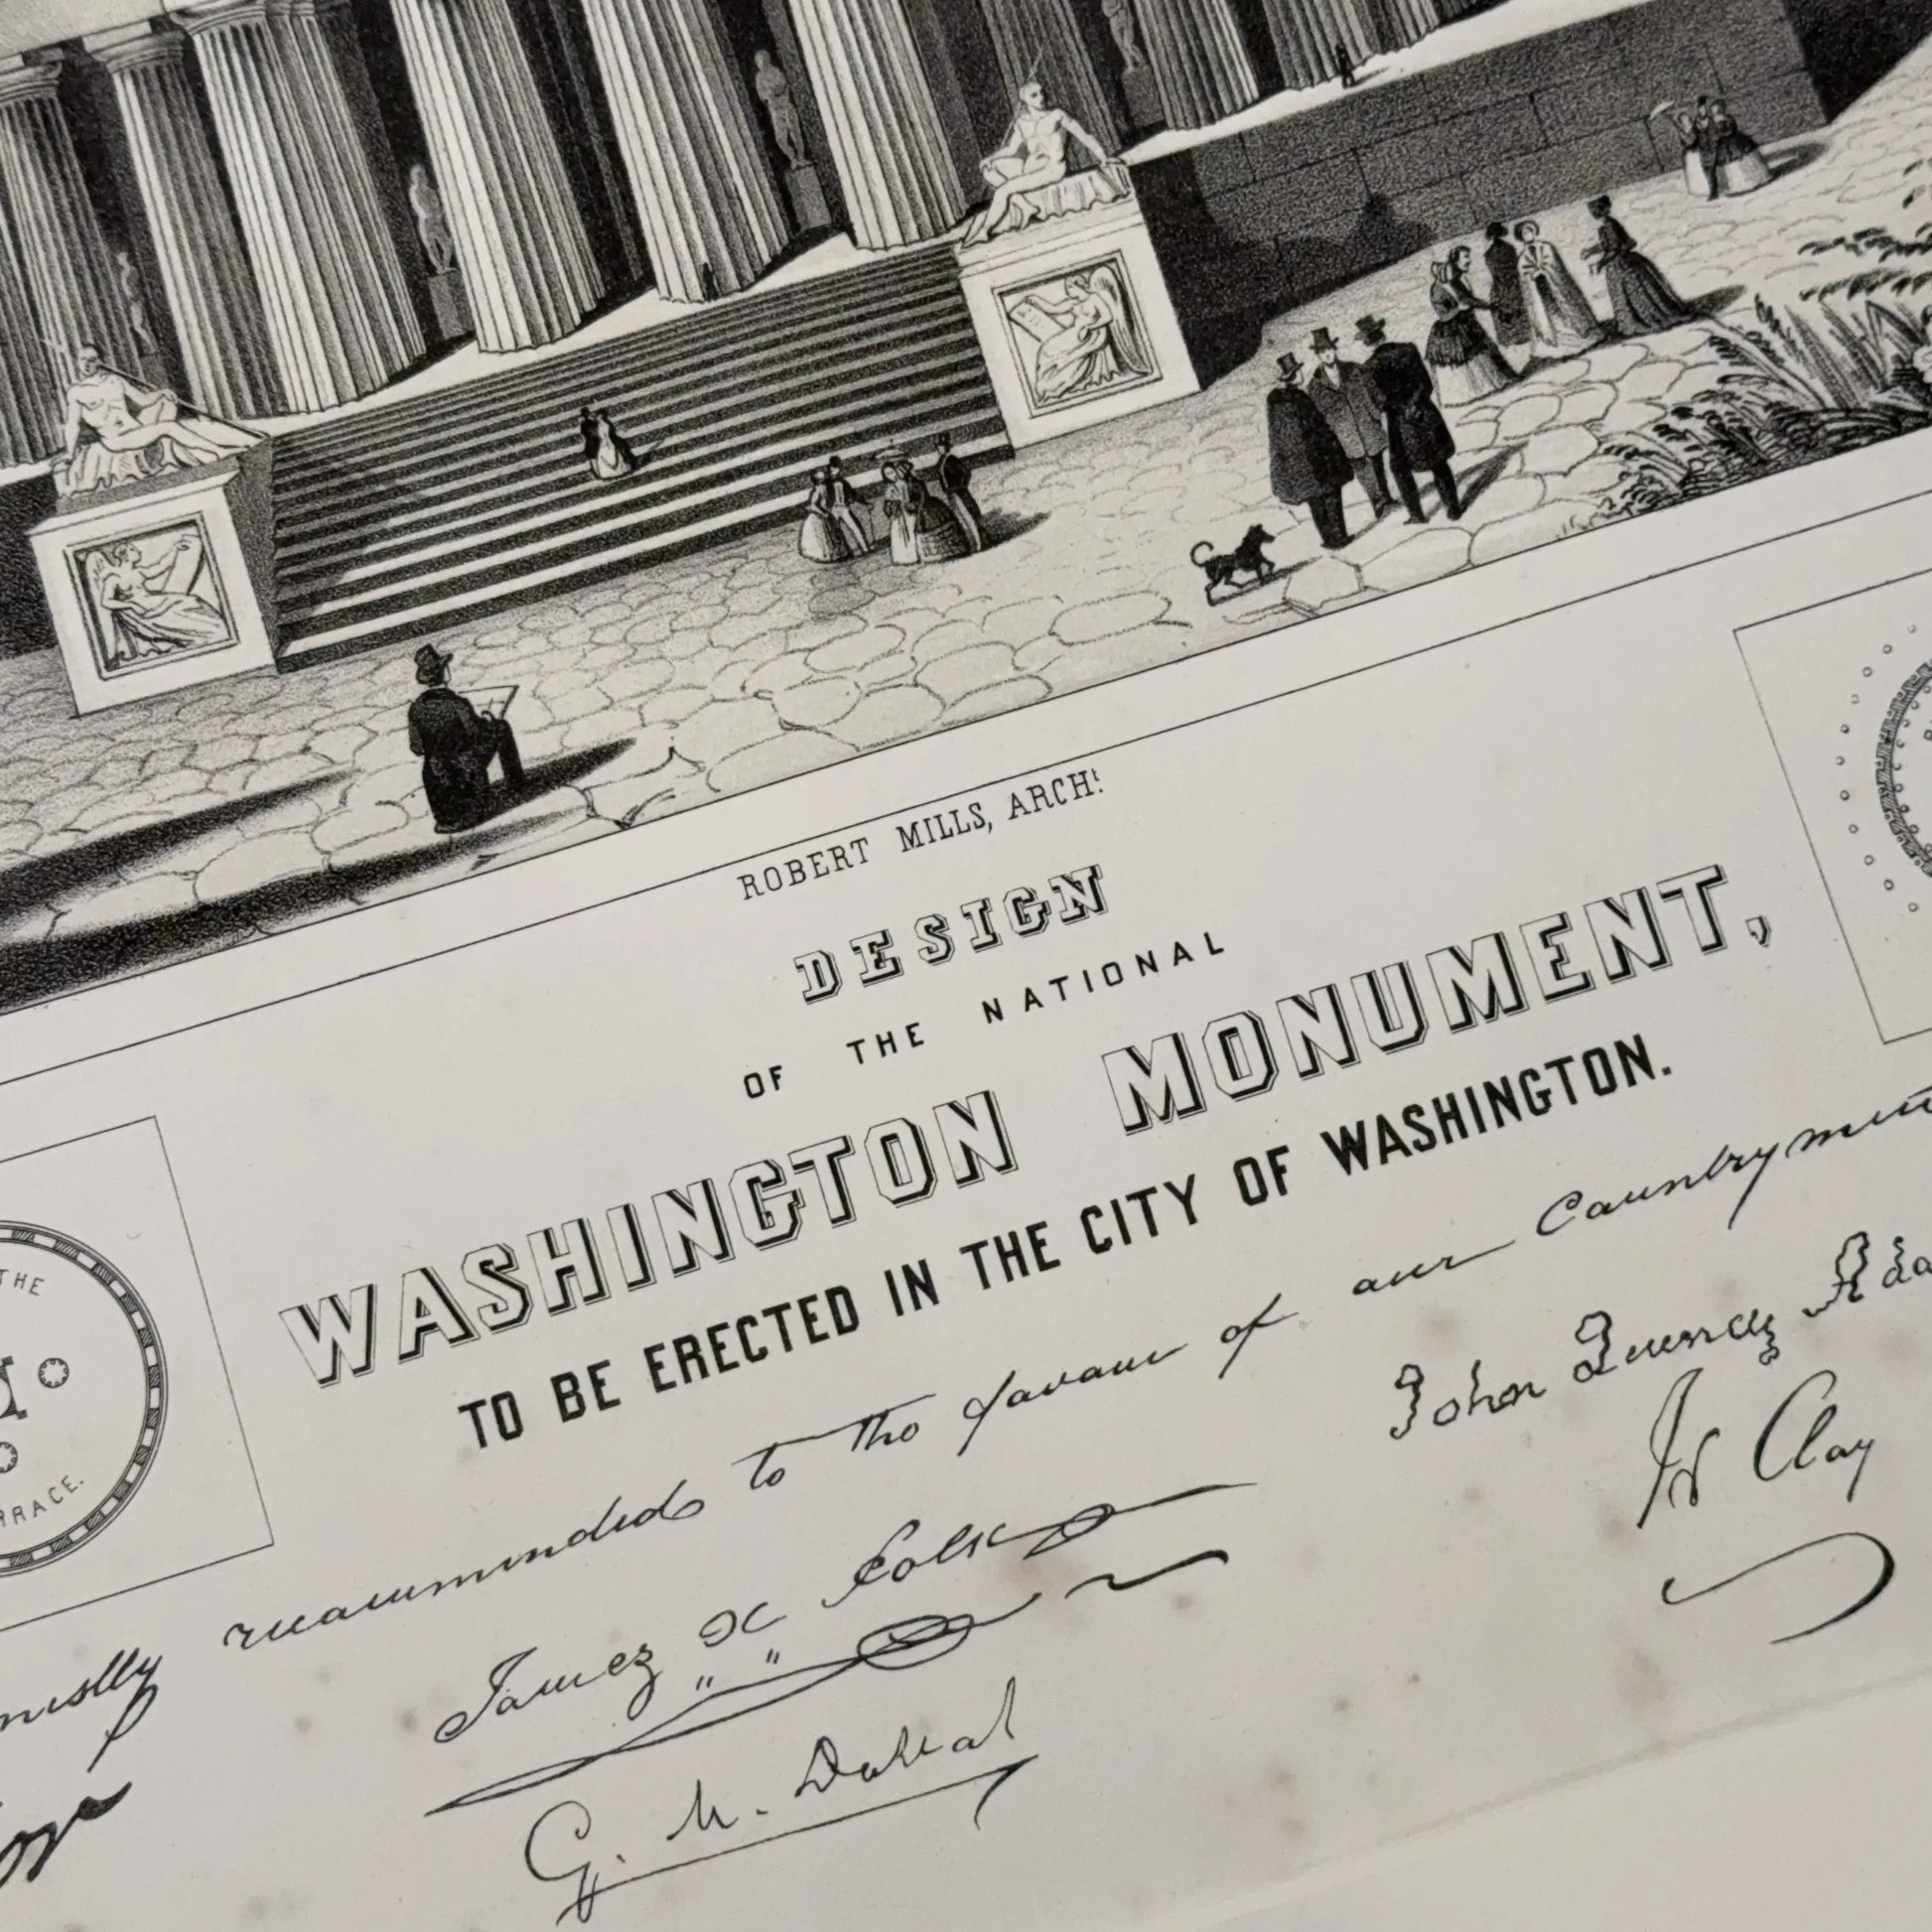 ROBERT MILLS, ARCHt.
DESIGN
OF THE NATIONAL
WASHINGTON MONUMENT,
TO BE ERECTED IN THE CITY OF WASHINGTON.
THE
RRACE.
recommended to the favour of our Countrymen
James K Polk
John Quincy Ada
H Clay
G. M. Dallas